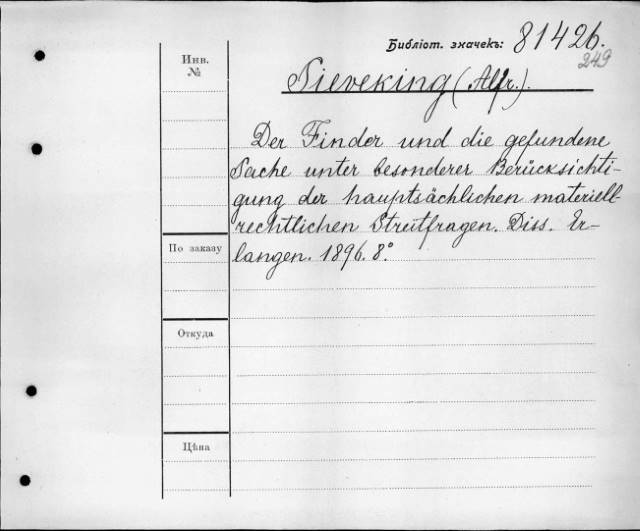 Библіот. значекъ: 81426.
249
Инв.
№
Sieveking (Alfr.).
Der Finder und die gefundene
Sache unter besonderer Berücksichti-
gung der hauptsächlichen materiell-
rechtlichen Streitfragen. Diss. Er-
langen. 1896. 8°.
По заказу
Откуда
Цѣна